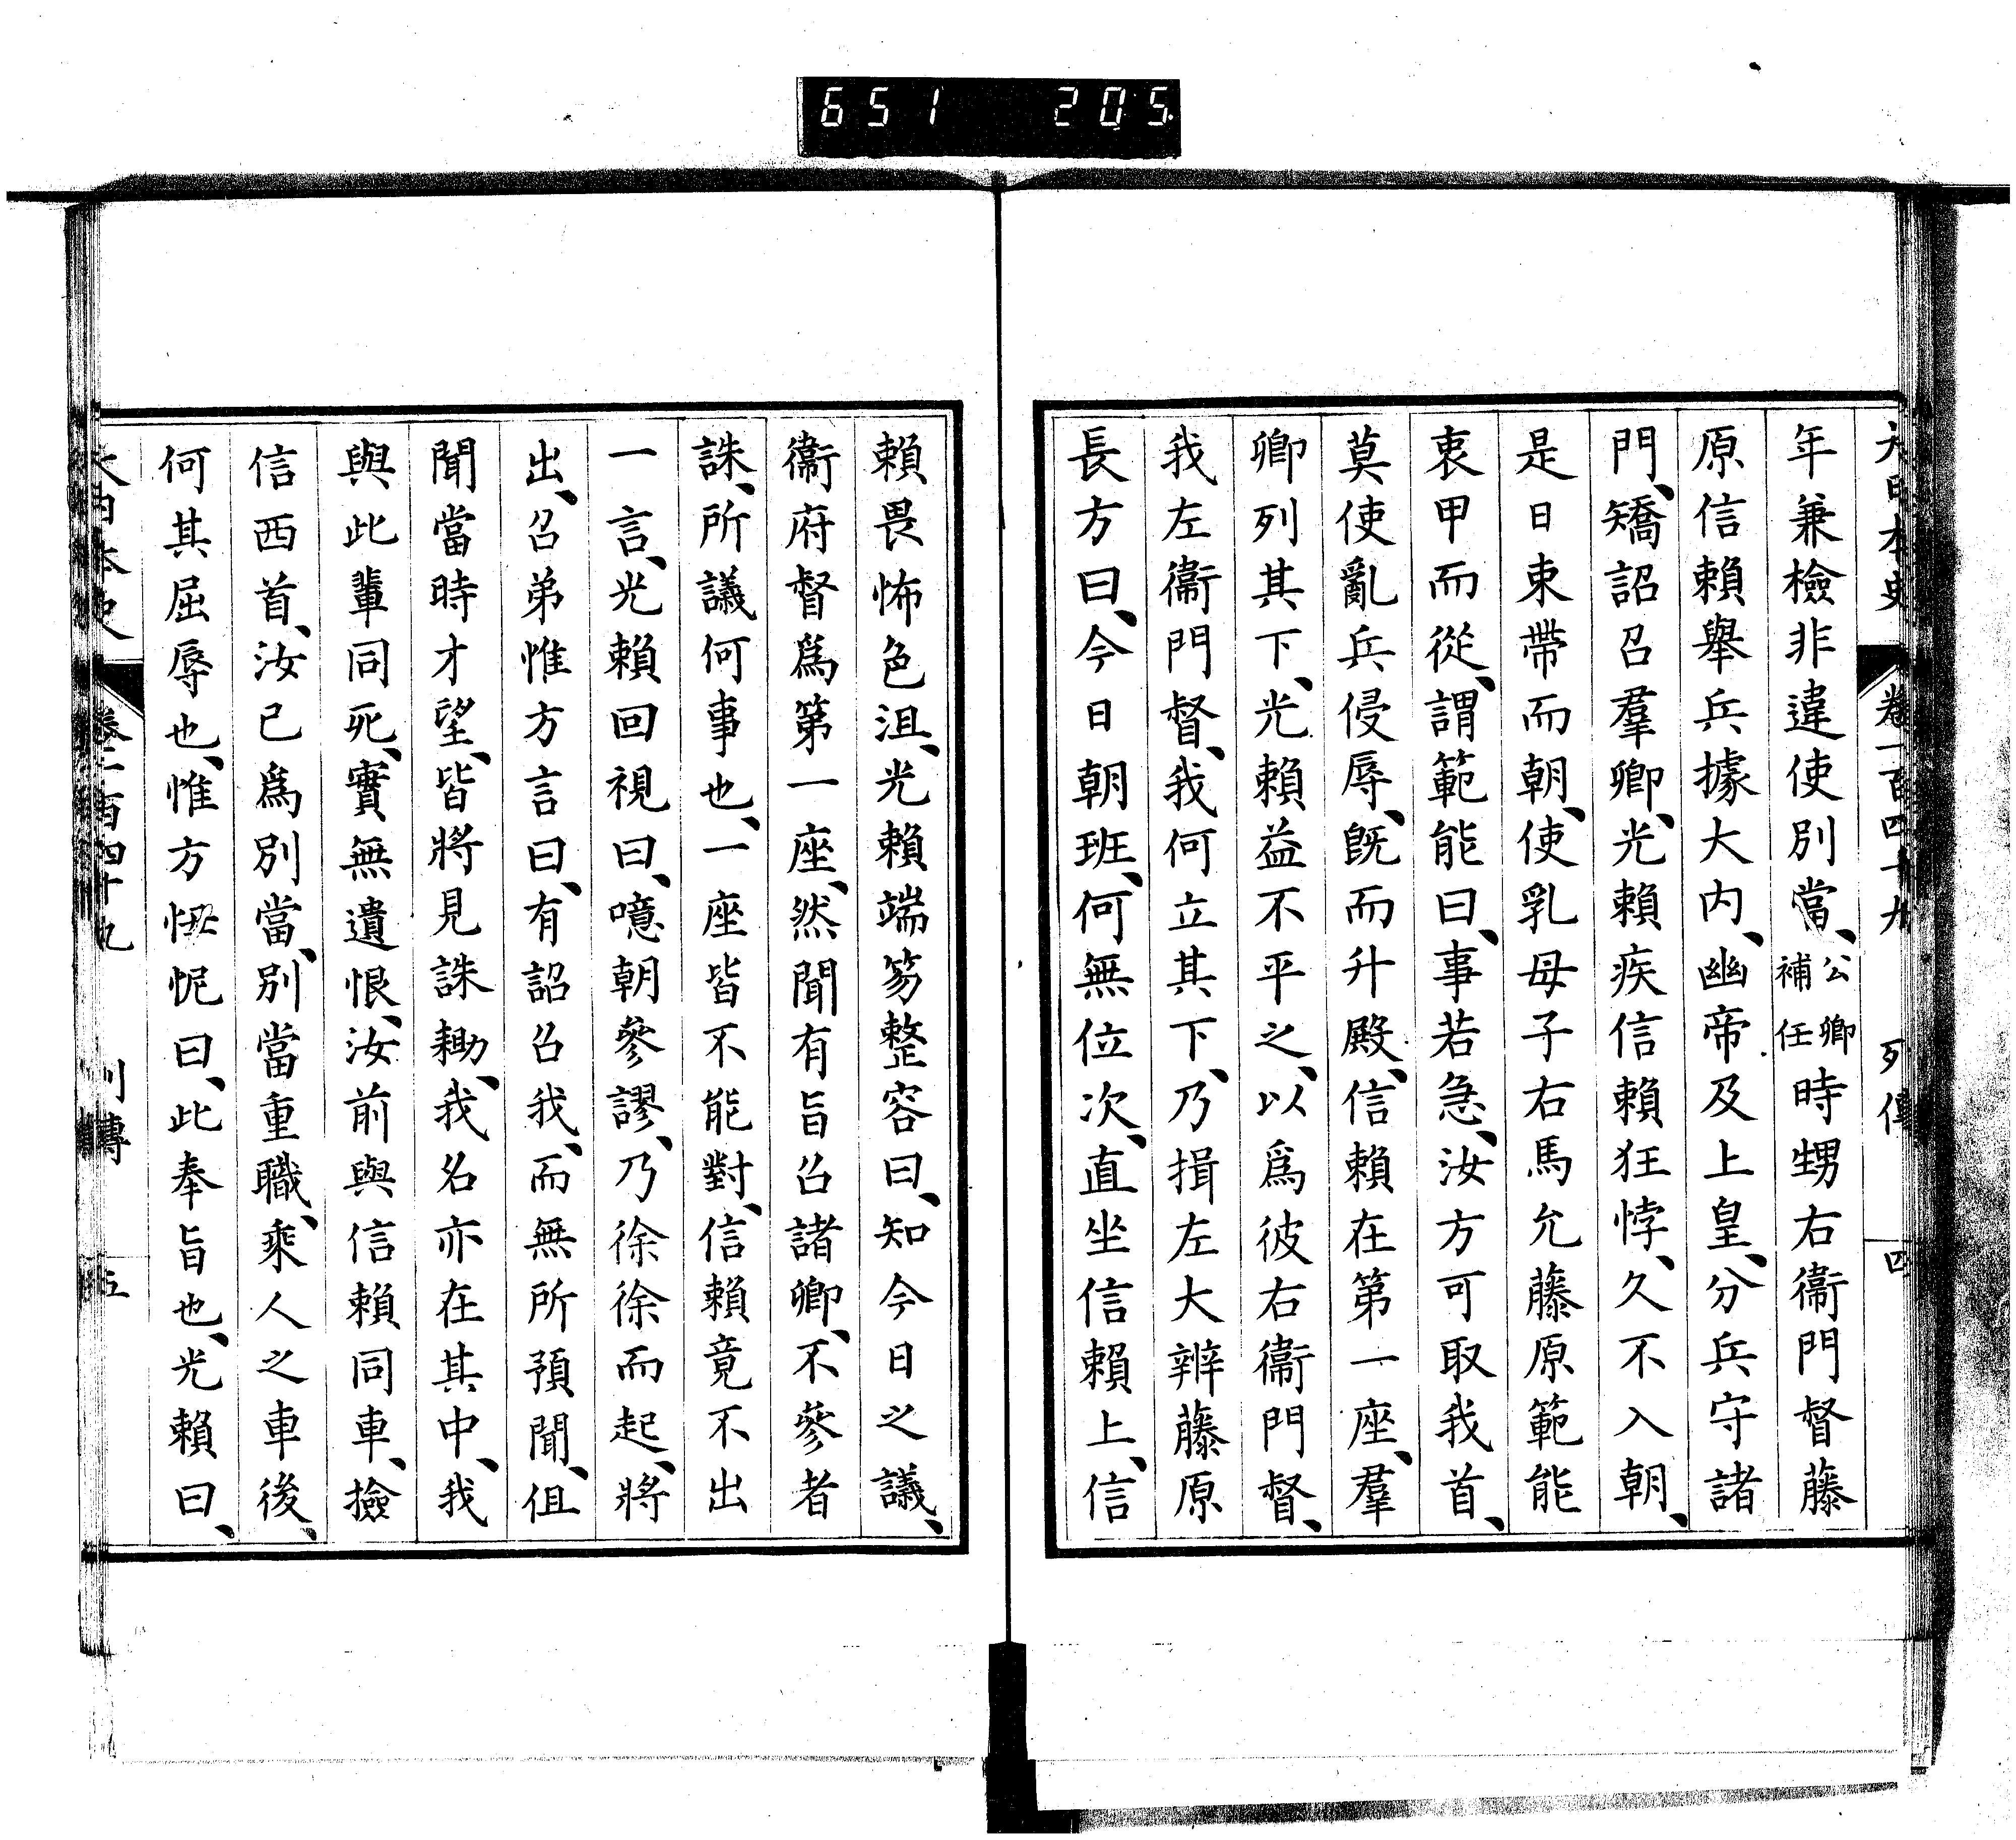 651 205
大日本史 卷一百四十九 列傳 四
年兼檢非違使別當、公卿補任時甥右衞門督藤
原信賴舉兵據大内、幽帝及上皇、分兵守諸
門、矯詔召羣卿、光賴疾信賴狂悖、久不入朝、
是日束帶而朝、使乳母子右馬允藤原範能
衷甲而從、謂範能曰、事若急、汝方可取我首、
莫使亂兵侵辱、旣而升殿、信賴在第一座、羣
卿列其下、光賴益不平之、以爲彼右衞門督、
我左衞門督、我何立其下、乃揖左大辨藤原
長方曰、今日朝班、何無位次、直坐信賴上、信
賴畏怖色沮、光賴端笏整容曰、知今日之議、
衞府督爲第一座、然聞有旨召諸卿、不參者
誅、所議何事也、一座皆不能對、信賴竟不出
一言、光賴回視曰、噫朝參謬、乃徐徐而起、將
出、召弟惟方言曰、有詔召我、而無所預聞、但
聞當時才望、皆將見誅勦、我名亦在其中、我
與此輩同死、實無遺恨、汝前與信賴同車、撿
信西首、汝已爲別當、別當重職、乘人之車後、
何其屈辱也、惟方忸怩曰、此奉旨也、光賴曰、
大日本史 卷一百四十九 列傳 五